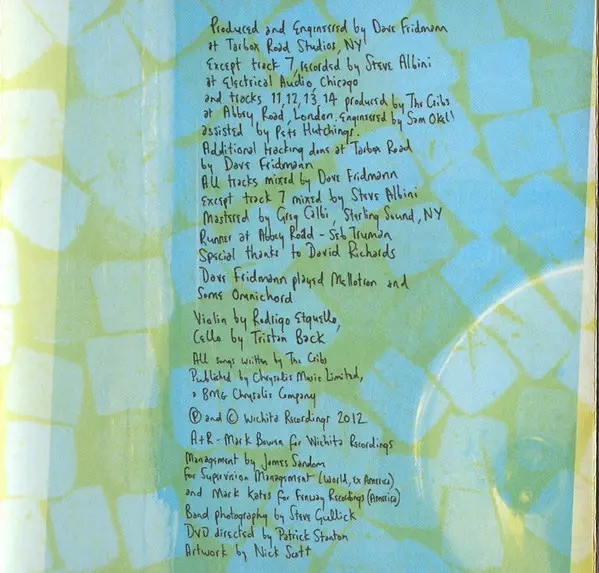 Produced and Engineered by Dave Fridmann
at Tarbox Road Studios, NY
Except track 7, recorded by Steve Albini
at Electrical Audio, Chicago
and tracks 11, 12, 13, 14 produced by The Cribs
at Abbey Road, London. Engineered by Sam Okell
assisted by Pete Hutchings.
Additional tracking done at Tarbox Road
by Dave Fridmann
All tracks mixed by Dave Fridmann
Except track 7 mixed by Steve Albini
Mastered by Greg Calbi, Sterling Sound, NY
Runner at Abbey Road - Seb Truman
Special thanks to David Richards
Dave Fridmann played Mellotron and
Some Omnichord
Violin by Rodrigo
Cello by Tristan Back
All songs written by The Cribs
Published by Chrysalis Music Limited,
a BMG Chrysalis Company
℗ and © Wichita Recordings 2012
A+R - Mark Bowen for Wichita Recordings
Management by James Sandom
for Supervision Management (World, Ex America)
and Mark Kates for Fenway Recordings (America)
Band photography by Steve Gullick
DVD directed by Patrick Stanton
Artwork by Nick Scott